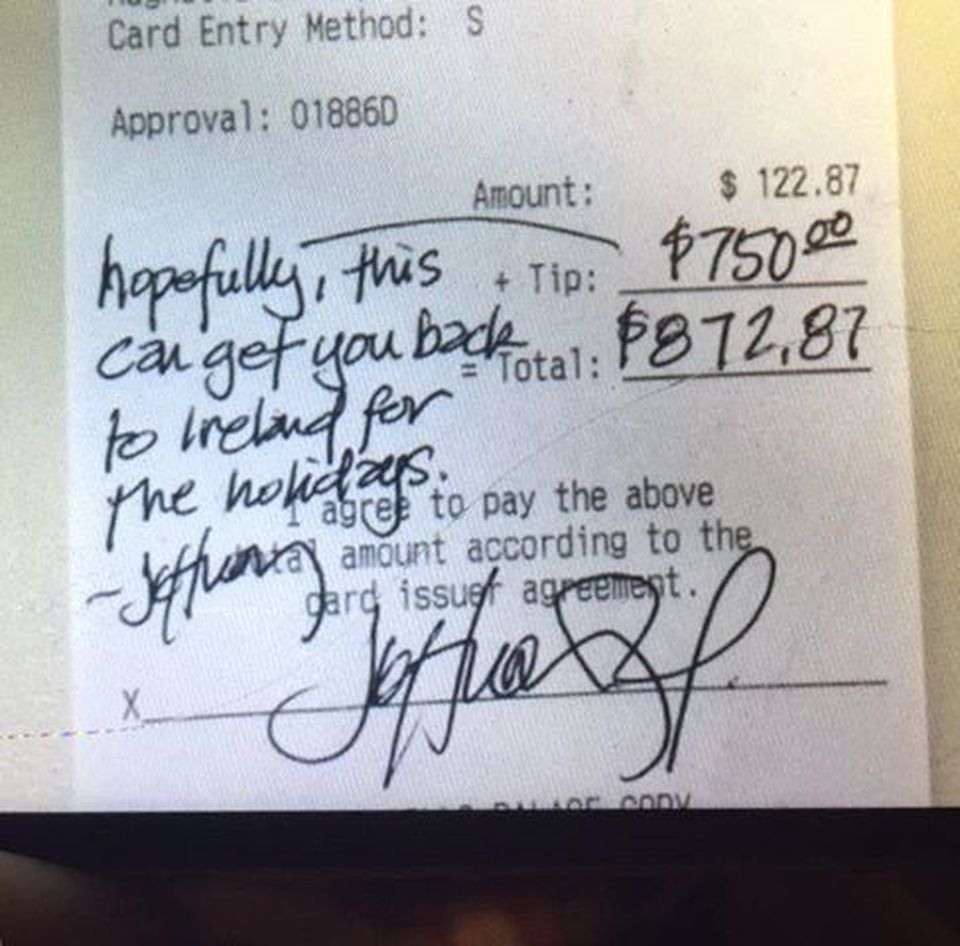 Card Entry Method: S
Approval: 01886D
Amount: $ 122.87
+ Tip: $750.00
= Total: $872.87
hopefully, this
can get you back
to Ireland for
the holidays.
- Jeffrey
I agree to pay the above
total amount according to the
card issuer agreement.
X
COPY